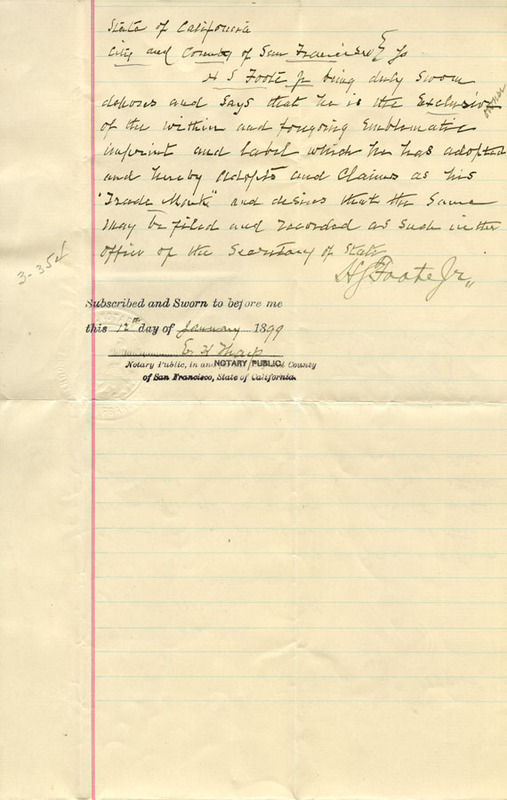 State of California
City and County of San Francisco } ss
H S Foote Jr being duly sworn
deposes and says that he is the Exclusive owner
of the within and foregoing Emblematic
imprint and label which he has adopted
and hereby adopts and claims as his
"Trade Mark" and desires that the same
may be filed and recorded as such in the
office of the Secretary of State
H S Foote Jr,,
3-354
Subscribed and Sworn to before me
this 12th day of January 1899
E. H. Tharp
Notary Public, in and NOTARY PUBLIC County
of San Francisco, State of California.